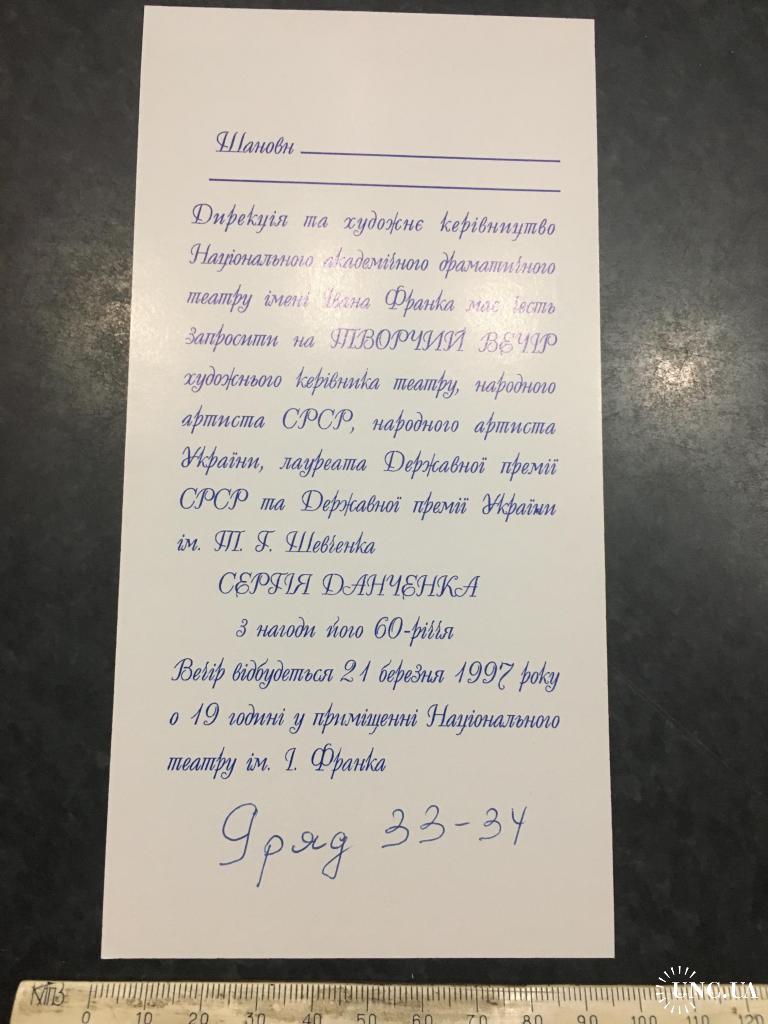 Шановн
Дирекція та художнє керівництво
Національного академічного драматичного
театру імені Івана Франка має честь
запросити на ТВОРЧИЙ ВЕЧІР
художнього керівника театру, народного
артиста СРСР, народного артиста
України, лауреата Державної премії
СРСР та Державної премії України
ім. Т. Г. Шевченка
СЕРГІЯ ДАНЧЕНКА
з нагоди його 60-річчя
Вечір відбудеться 21 березня 1997 року
о 19 годині у приміщенні Національного
театру ім. І. Франка
9 ряд 33-34
КТПЗ
0 10 20 30 40 50 60 70 80 90 100 110 120
UNC.UA